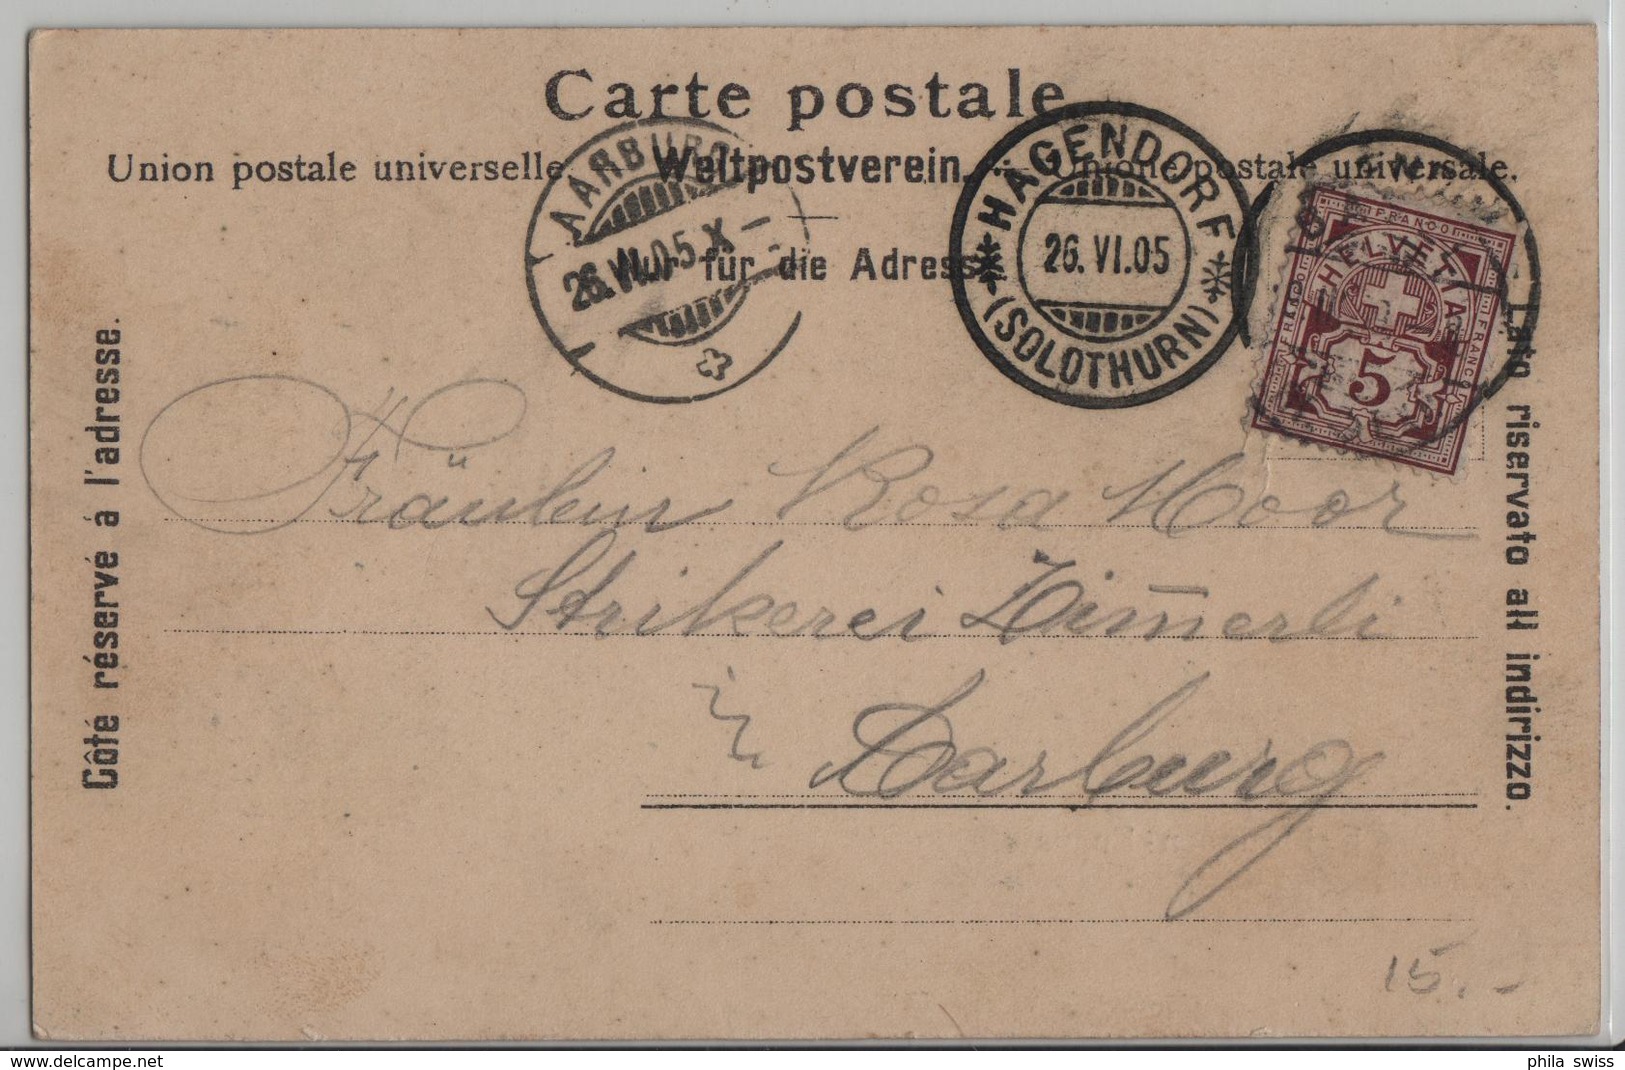 Carte postale
Union postale universelle. Weltpostverein. Unione postale universale.
Nur für die Adresse.
Côté réservé à l'adresse.
Lato riservato all indirizzo.
AARBURG
26.VI.05.X
HÄGENDORF
26.VI.05
(SOLOTHURN)
FRANCO
FRANCO
FRANCO
HELVETIA
5
Fräulein Rosa Moor
Strikerei Zim̅erli
in Aarburg
15.-
delcampe.net
phila_swiss